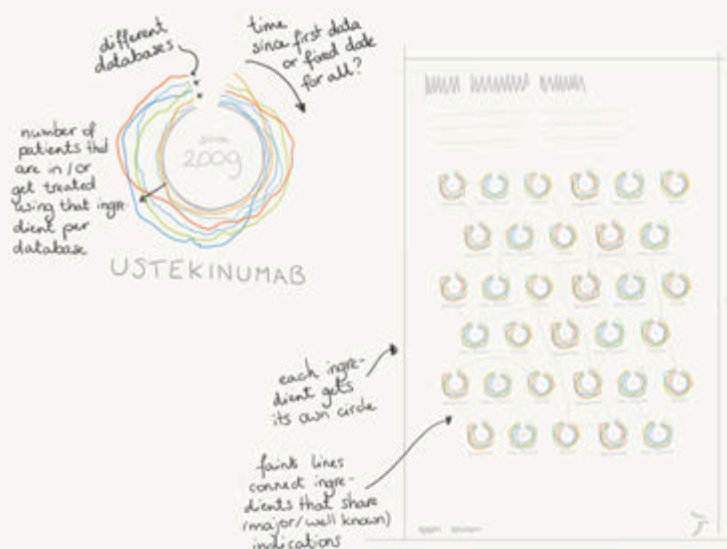 different
databases
time
since first data
or fixed date
for all?
number of
patients that
are in / or
get treated
using that ingre-
dient per
database
since
2009
USTEKINUMAB
each ingre-
dient gets
its own circle
faint lines
connect ingre-
dients that share
(major/well known)
indications